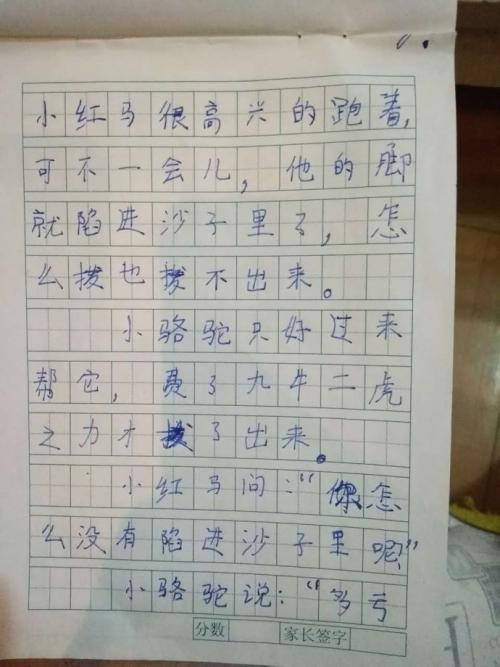 小红马很高兴的跑着,
可不一会儿,他的脚
就陷进沙子里了,怎
么拨也拨不出来。
小骆驼只好过来
帮它,费了九牛二虎
之力才拨了出来。
小红马问:“你怎
么没有陷进沙子里呢”
小骆驼说:“多亏
分数 家长签字